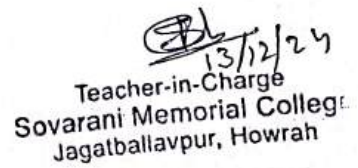 13/12/24
Teacher-in-Charge
Sovarani Memorial College
Jagatballavpur, Howrah